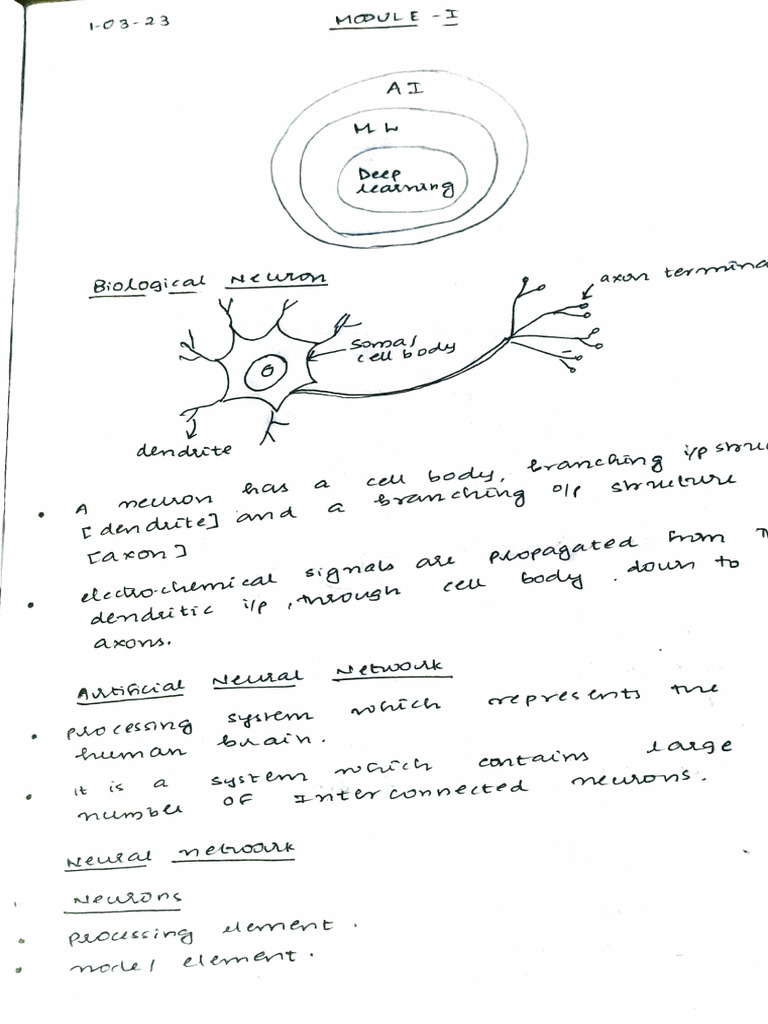 1-03-23
MODULE - I
AI
ML
Deep
learning
Biological Neuron
axon termina
Soma/
cell body
dendrite
• A neuron has a cell body, branching i/p struc
[dendrite] and a branching o/p structure
[axon]
• electro-chemical signals are propagated from
dendritic i/p, through cell body. down to
axons.
Artificial Neural Network
• processing system which represents the
human brain.
• it is a system which contains large
number of Interconnected neurons.
Neural network
Neurons
• processing element.
• node/ element.